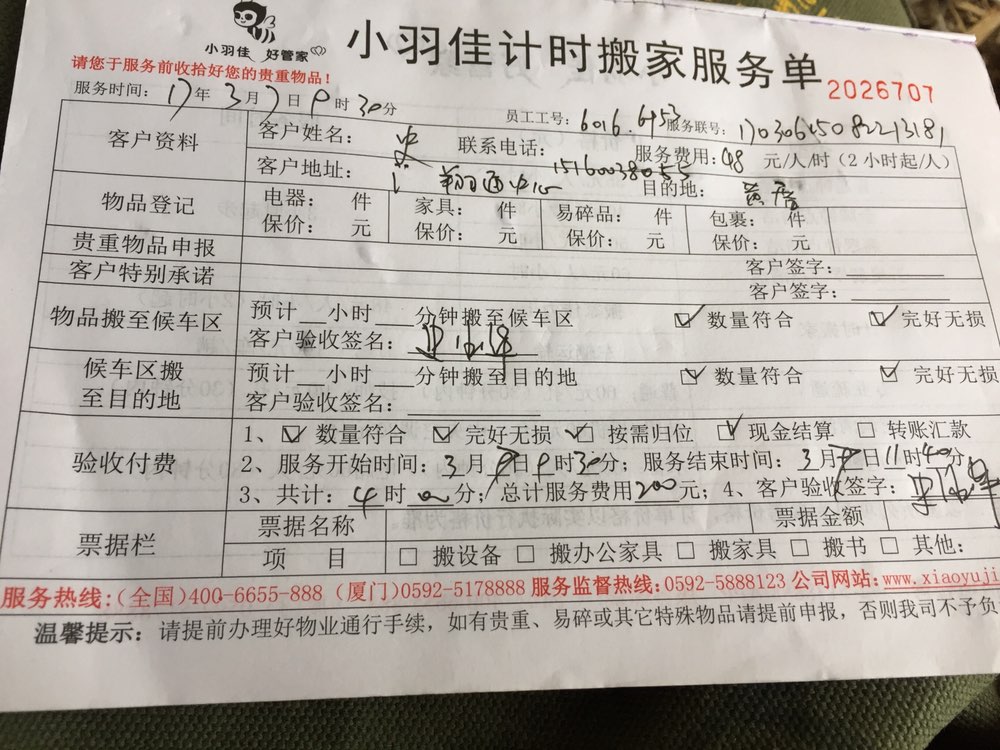 小羽佳 好管家
小羽佳计时搬家服务单
2026707
请您于服务前收拾好您的贵重物品！
服务时间：17年3月7日9时30分 员工工号：6016.6453 服务联号：
客户资料 客户姓名：史 联系电话：15160038055 服务费用：48元/人/时（2小时起/人）
客户地址： 翔 中心 目的地：黄厝
物品登记 电器： 件 家具： 件 易碎品： 件 包裹： 件
保价： 元 保价： 元 保价： 元 保价： 元
贵重物品申报 客户签字：
客户特别承诺 客户签字：
物品搬至候车区 预计 小时 分钟搬至候车区 ☑ 数量符合 ☑ 完好无损
客户验收签名：
候车区搬至目的地 预计 小时 分钟搬至目的地 ☑ 数量符合 ☑ 完好无损
客户验收签名：
验收付费 1、☑ 数量符合 ☑ 完好无损 ☑ 按需归位 ☑ 现金结算 □ 转账汇款
2、服务开始时间：3月7日9时30分；服务结束时间：3月7日11时40分；
3、共计：4时 分；总计服务费用200元；4、客户验收签字：
票据栏 票据名称 票据金额
项 目 □ 搬设备 □ 搬办公家具 □ 搬家具 □ 搬书 □ 其他：
服务热线：(全国)400-6655-888 (厦门)0592-5178888 服务监督热线：0592-5888123 公司网站：www.xiaoyuji
温馨提示：请提前办理好物业通行手续，如有贵重、易碎或其它特殊物品请提前申报，否则我司不予负